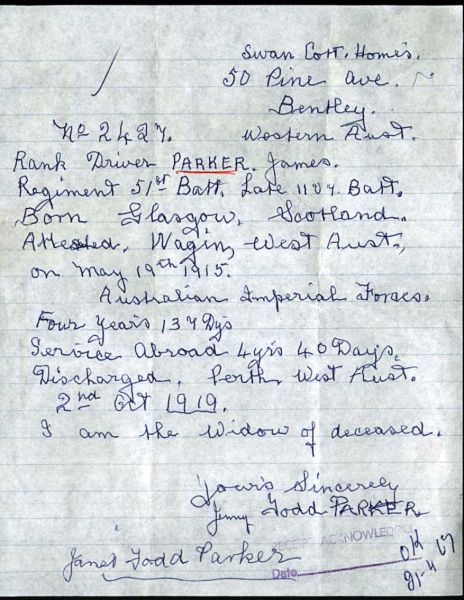 Swan Cott. Homes.
50 Pine Ave.
Bentley.
No 2427. Western Aust.
Rank Driver PARKER. James.
Regiment 51st Batt. Late 11th. Batt.
Born Glasgow, Scotland.
Attested, Wagin, West Aust.,
on May 19th 1915.
Australian Imperial Forces.
Four Years 137 Dys
Service Abroad 4yrs 40 Days.
Discharged, Perth, West Aust.
2nd Oct 1919.
I am the Widow of deceased.
Yours Sincerely
Jenny Todd PARKER
RECEIPT ACKNOWLEDGED
Janet Todd Parker
Date
OK